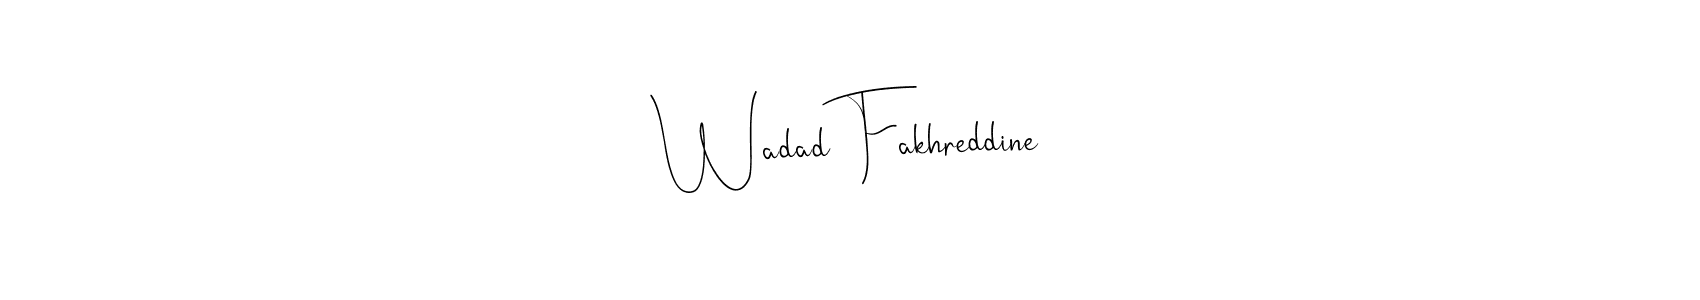 Wadad Fakhreddine